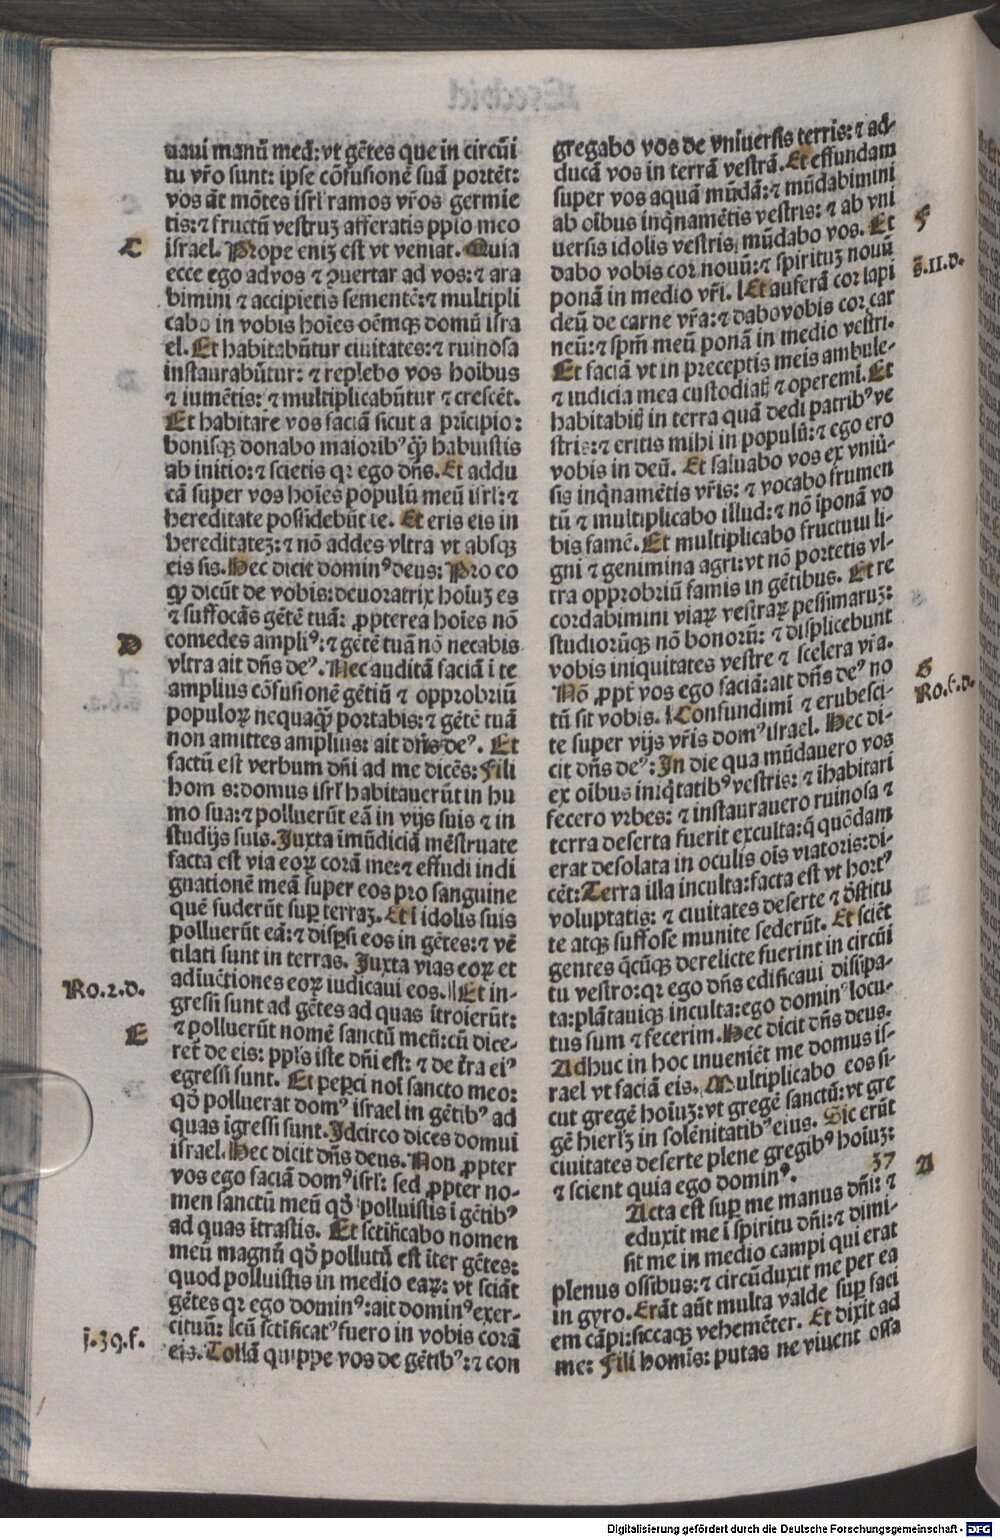 uaui manū meā: vt gētes que in circūi
tu vr̄o sunt: ipse cōfusionē suā portēt:
vos āt mōtes isrl̄ ramos vr̄os germie
tis: ⁊ fructū vestruꝫ afferatis pp̄lo meo
C
israel. Prope eniꝫ est vt veniat. Quia
ecce ego ad vos ⁊ ꝯuertar ad vos: ⁊ ara
bimini ⁊ accipietis sementē: ⁊ multipli
cabo in vobis hoīes oēmqꝫ domū isra
el. Et habitabūtur ciuitates: ⁊ ruinosa
instaurabūtur: ⁊ replebo vos hoībus
⁊ iumētis: ⁊ multiplicabūtur ⁊ crescēt.
Et habitare vos faciā sicut a prīcipio:
bonisqꝫ donabo maioribꝰ qꝫ̄ habuistis
ab initio: ⁊ scietis qꝛ ego dn̄s. Et addu
cā super vos hoīes populū meū isrl̄: ⁊
hereditate possidebūt te. Et eris eis in
hereditateꝫ: ⁊ nō addes vltra vt absqꝫ
eis sis. Hec dicit dominꝰ deus: Pro eo
qꝫ dicūt de vobis: deuoratrix hoīuꝫ es
⁊ suffocās gētē tuā: ꝓpterea hoīes nō
D
comedes ampliꝰ: ⁊ gētē tuā nō necabis
vltra ait dn̄s deꝰ. Nec auditā faciā ī te
amplius cōfusionē gētiū ⁊ opprobriū
populoꝝ nequaqꝫ̄ portabis: ⁊ gētē tuā
non amittes amplius: ait dn̄s deꝰ. Et
factū est verbum dn̄i ad me dicēs: Fili
hom s: domus isrl̄ habitauerūt in hu
mo sua: ⁊ polluerūt eā in vijs suis ⁊ in
studijs suis. Juxta īmūdiciā mēstruate
facta est via eoꝝ corā me: ⁊ effudi indi
gnationē meā super eos pro sanguine
quē fuderūt sup̱ terraꝫ. Et ī idolis suis
polluerūt eā: ⁊ disp̱si eos in gētes: ⁊ vē
tilati sunt in terras. Juxta vias eoꝝ et
Ro.2.d.
adīuētiones eoꝝ iudicaui eos. ‖Et in-
gressi sunt ad gētes ad quas ītroierūt:
E
⁊ polluerūt nomē sanctū meū: cū dice-
ret̄ de eis: pp̄ls iste dn̄i est: ⁊ de t̄ra eiꝰ
egressi sunt. Et pep̱ci noī sancto meo:
qḋ polluerat domꝰ israel in gētibꝰ ad
quas īgressi sunt. Idcirco dices domui
israel. Hec dicit dn̄s deus. Non ꝓpter
vos ego faciā domꝰ isrl̄: sed ꝓpter no-
men sanctū meū qḋ polluistis ī gētibꝰ
ad quas ītrastis. Et sctīficabo nomen
meū magnū qḋ pollutū est īter gētes:
quod polluistis in medio eaꝝ: vt sciāt
gētes qꝛ ego dominꝰ: ait dominꝰ exer-
j.39.f.
cituū: |cū sctīficatꝰ fuero in vobis corā
eis. Tollā quippe vos de gētibꝰ: ⁊ con
gregabo vos de vniuersis terris: ⁊ ad-
ducā vos in terrā vestrā. Et effundam
super vos aquā mūdā: ⁊ mūdabimini
ab oībus inqͥnamētis vestris: ⁊ ab vni
F
uersis idolis vestris mūdabo vos. Et
dabo vobis cor nouū: ⁊ spirituꝫ nouū
s̄.11.d.
ponā in medio vr̄i. |Et auferā cor lapi
deū de carne vr̄a: ⁊ dabo vobis cor car
neū: ⁊ spm̄ meū ponā in medio vestri.
Et faciā vt in preceptis meis ambule-
⁊ iudicia mea custodiatꝭ ⁊ operemī. Et
habitabitꝭ in terra quā dedi patribꝰ ve
stris: ⁊ eritis mihi in populū: ⁊ ego ero
vobis in deū. Et saluabo vos ex vniū-
sis inqͥnamētis vr̄is: ⁊ vocabo frumen
tū ⁊ multiplicabo illud: ⁊ nō īponā vo
bis famē. Et multiplicabo fructum li-
gni ⁊ genimina agri: vt nō portetis vl-
tra opprobriū famis in gētibus. Et re
cordabimini viaꝝ vestraꝝ pessimaruꝫ:
studiorūqꝫ nō bonorū: ⁊ displicebunt
vobis iniquitates vestre ⁊ scelera vr̄a.
G
Nō ꝓpt̄ vos ego faciā: ait dn̄s deꝰ no
Ro.6.d.
tū sit vobis. |Confundimī ⁊ erubesci-
te super vijs vr̄is domꝰ israel. Hec di-
cit dn̄s deꝰ: In die qua mūdauero vos
ex oībus iniqͥtatibꝰ vestris: ⁊ īhabitari
fecero vrbes: ⁊ instaurauero ruinosa ⁊
terra deserta fuerit exculta: q̄ quōdam
erat desolata in oculis oīs viatoris: di-
cēt: Terra illa inculta: facta est vt hortꝰ
voluptatis: ⁊ ciuitates deserte ⁊ ꝺstitu
te atqꝫ suffose munite sederūt. Et sciēt
gentes q̄cūqꝫ derelicte fuerint in circūi
tu vestro: qꝛ ego dn̄s edificaui dissipa-
ta: plātauiqꝫ inculta: ego dominꝰ locu-
tus sum ⁊ fecerim. Hec dicit dn̄s deus.
Adhuc in hoc inueniēt me domus is-
rael vt faciā eis. Multiplicabo eos si-
cut gregē hoīuꝫ: vt gregē sanctū: vt gre
gē hierlꝫ̄ in solēnitatibꝰ eius. Sic erūt
ciuitates deserte plene gregibꝰ hoīuꝫ:
⁊ scient quia ego dominꝰ. 37
A
Acta est sup̱ me manus dn̄i: ⁊
eduxit me ī spiritu dn̄i: ⁊ dimi-
sit me in medio campi qui erat
plenus ossibus: ⁊ circūduxit me per ea
in gyro. Erāt aūt multa valde sup̱ faci
em cāpi: siccaqꝫ vehemēter. Et dixit ad
me: Fili homīs: putas ne viuent ossa
Digitalisierung gefördert durch die Deutsche Forschungsgemeinschaft - DFG